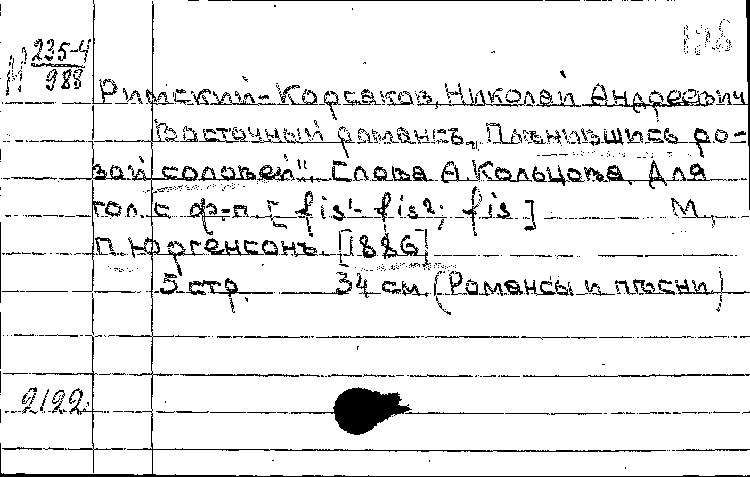 128
М 235-4
988
Римский-Корсаков, Николай Андреевич
Восточный романсъ „Плѣнившись ро-
зой соловей". Слова А. Кольцова. Для
гол. с ф-п. [fis¹- fis²; fis] М.,
П. Юргенсонъ. [1886]
5 стр. 34 см. (Романсы и пѣсни)
2122